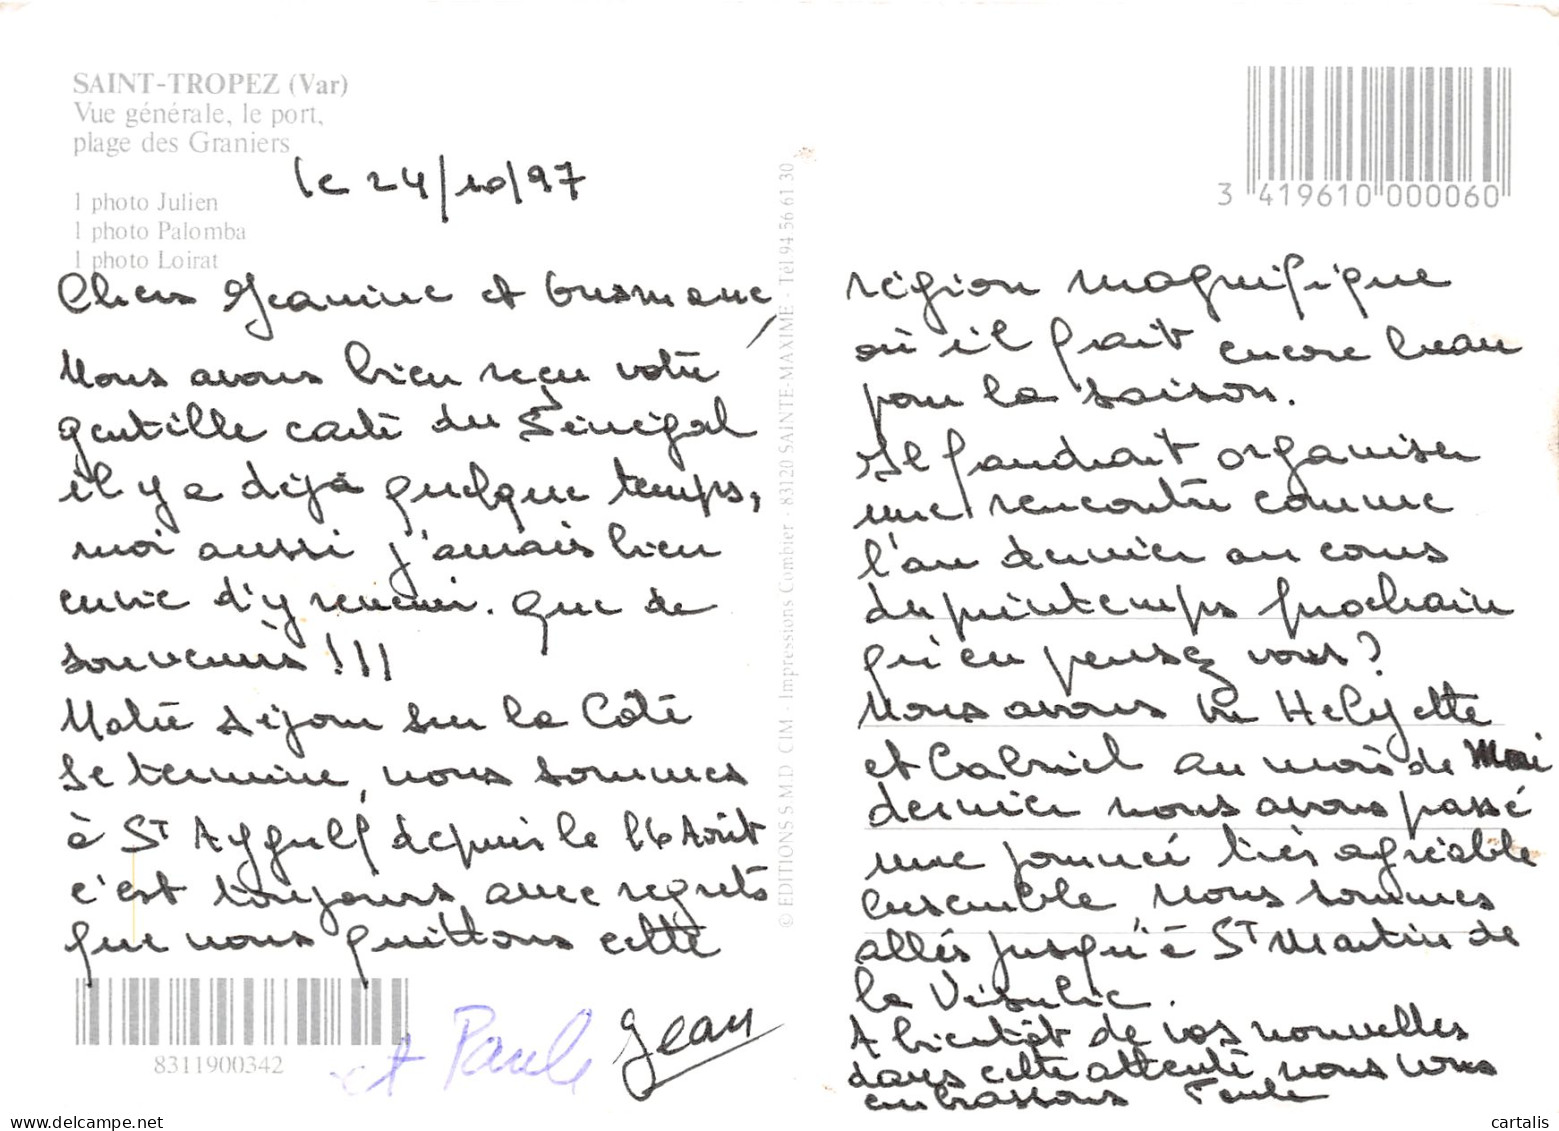 SAINT-TROPEZ (Var)
Vue générale, le port,
plage des Graniers
1 photo Julien
1 photo Palomba
1 photo Loirat
le 24/10/97
Chers Jeanine et
Nous avons bien reçu votre
gentille carte du Sénégal
il y a déjà quelque temps,
moi aussi j'aurais bien
envie d'y revenir. Que de
souvenirs !!!
Notre séjour sur la Côte
se termine, nous sommes
à St Aygulf depuis le 16 Août
c'est toujours avec regrets
que nous quittons cette
8311900342
et Paule Jean
© EDITIONS S.M.D CIM - Impressions Combier - 83120 SAINTE-MAXIME - Tél 94 56 61 30
3 419610 000060
région magnifique
où il fait encore beau
pour la saison.
Il faudrait organiser
une rencontre comme
l'an dernier au cours
du printemps prochain
qu'en pensez vous?
Nous avons vu Helyette
et Gabriel au mois de Mai
dernier nous avons passé
une journée très agréable
ensemble nous sommes
allés jusqu'à St Martin de
la Vésubie.
A bientôt de vos nouvelles
dans cette attente nous vous
embrassons Paule